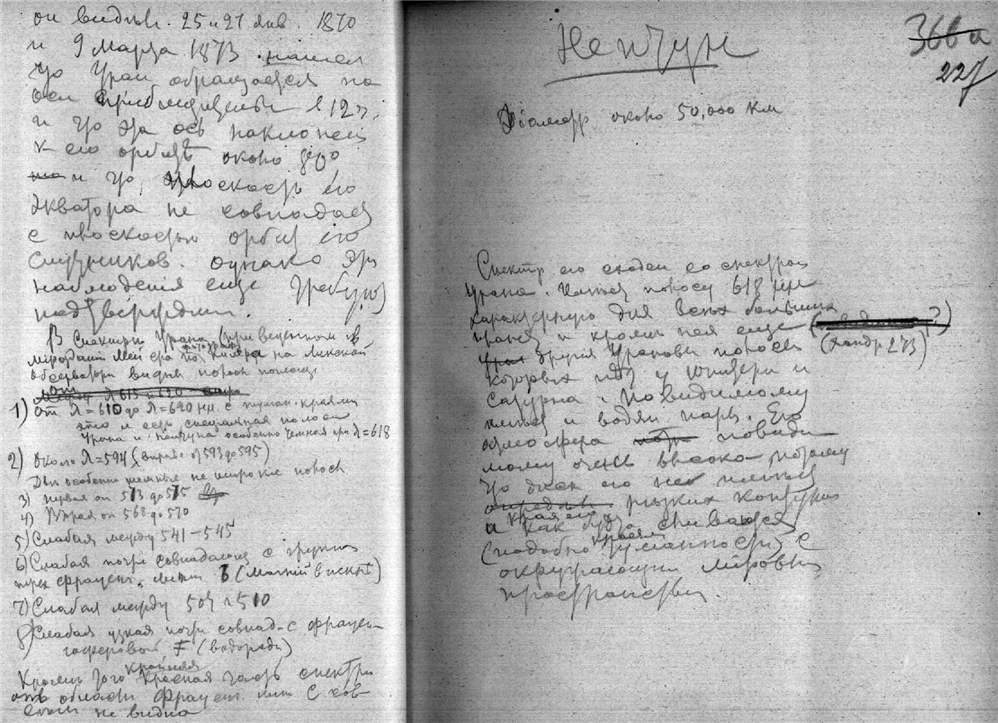 он видѣл. 25 и 27 янв. 1870
и 9 марта 1873. нашел
что Уран обращается на
оси приблизительно в 12 ч.
и что эта ось наклонена
к его орбитѣ около 80°
и что, плоскость его
экватора не совпадает
с плоскостью орбит его
спутников. однако эти
наблюдения еще требуют
подтверждения.
В Спектре Урана приведенном в
мироздании Мейера на Ликской
обсерватории видны полосы
1) От λ=610 до λ=620 с туман. краями
это и есть специальная полоса
Урана и Нептуна особенно темная при λ=618
2) Около λ=594 (вправо от 593 до 595)
Две особенно темные не широкие полосы
3) первая от 573 до 575
4) Вторая от 568 до 570
5) Слабая между 541-545
6) Слабая почти совпадающ. с группой
трех фрауенг. линий b (магний в искрѣ)
7) Слабая между 509 и 510
8) Слабая узкая почти совпад. с фрауен-
гоферовой F (водорода)
крайняя
Кромѣ того красная часть спектра
от области Фрауенг. лин. С сов-
сем не видна
Нептун
366а
227
Диаметр около 50,000 км
Спектр его сходен со спектром
Урана. Имѣет полосу 618 μμ
характерную для всѣх больших
планет и кромѣ нея еще
другия Урановы полосы
(Хандр 273)
которых нѣт у Юпитера и
Сатурна. По видимому
имѣет и водян. пары. Его
атмосфера повиди-
мому очень высока, потому
что диск его не имѣет
рѣзких контуров
а краями как будто сливается
(подобно туманности) с
окружающим мировым
пространством.